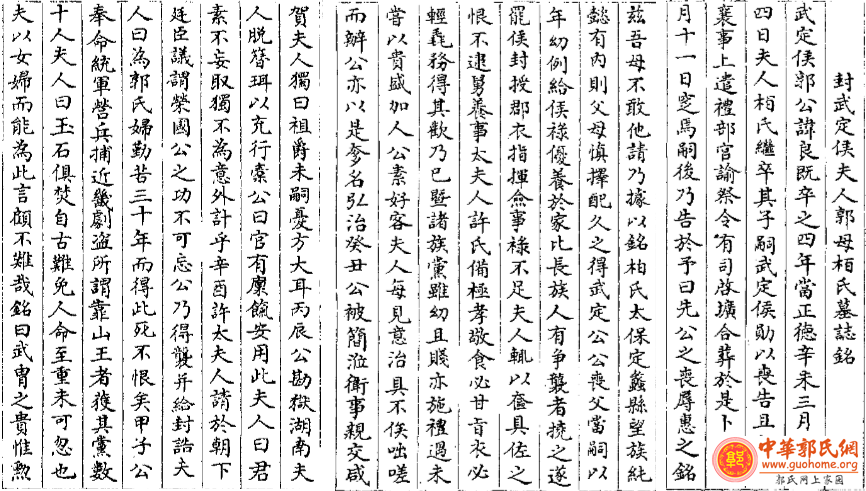 封武定侯夫人郭母柏氏墓誌銘
武定侯郭公諱良既卒之四年當正德辛未三月
四日夫人柏氏繼卒其子嗣武定侯勛以喪告且
襄事上遣禮部官諭祭令有司啓壙合葬於是卜
月十一日窆焉嗣後乃告於予曰先公之喪辱惠之銘
兹吾母不敢他請乃據以銘柏氏太保定蠡縣望族純
懿有内則父母慎擇配久之得武定公公喪父當嗣以
年幼例給侯祿優養於家比長族人有爭襲者撓之遂
罷侯封授郡衣指揮僉事祿不足夫人輒以奩具佐之
恨不逮舅養事太夫人許氏備極孝敬食必甘旨衣必
輕毳務得其歡乃已暨諸族黨雖幼且賤亦施禮過未
嘗以貴盛加人公素好客夫人每見意治具不俟咄嗟
而辦公亦以是奓名弘治癸丑公被簡涖衛事親交咸
賀夫人獨曰祖爵未嗣憂方大耳丙辰公勘獄湖南夫
人脱簪珥以充行橐公曰官有廩餼安用此夫人曰君
素不妄取獨不為意外計乎辛酉許太夫人請於朝下
廷臣議謂榮國公之功不可忘公乃得襲并給封誥夫
人曰為郭氏婦勤苦三十年而得此死不恨矣甲子公
奉命統軍營兵捕近畿劇盜所謂靠山王者獲其黨數
十人夫人曰玉石俱焚自古難免人命至重未可忽也
夫以女婦而能為此言顧不難哉銘曰武胄之貴惟勲
中華郭氏網
www.guohome.org
郭氏网上家園